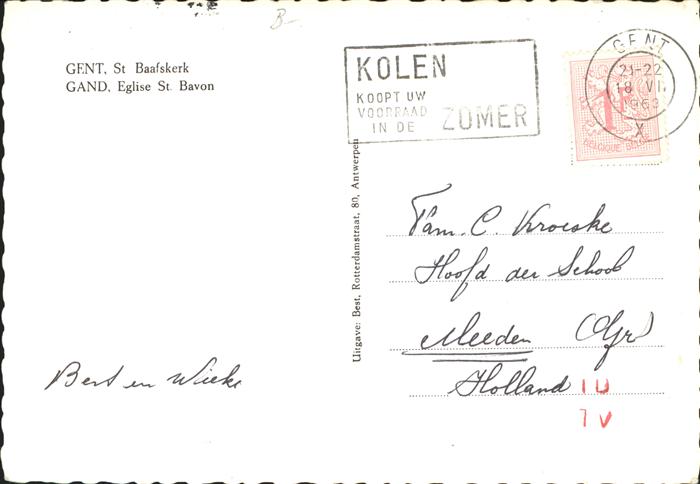 B-
GENT, St Baafskerk
GAND, Eglise St. Bavon
KOLEN
KOOPT UW
VOORRAAD
IN DE ZOMER
GENT
21-22
18 VII
1963
X
1F
BELGIQUE BELGIE
Uitgave: Best, Rotterdamstraat, 80, Antwerpen
Fam. C. Kroeske
Hoofd der School
Meeden (Gr)
Holland
Bert en Wieke